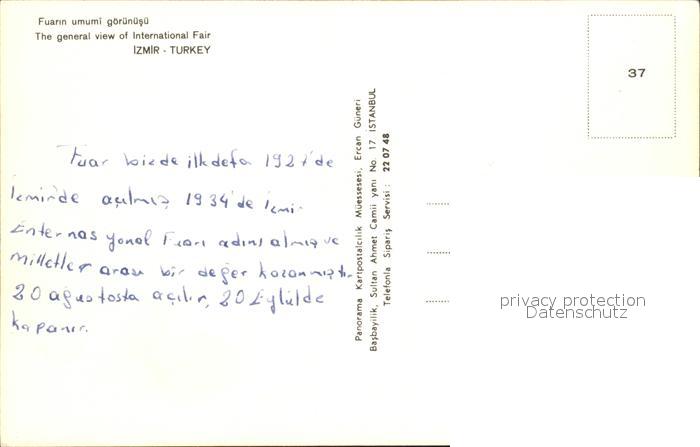 Fuarın umumî görünüşü
The general view of International Fair
İZMİR - TURKEY
37
Fuar bizde ilkdefa 1927'de
İzmir'de açılmış 1934'de İzmir
Enternasyonal Fuarı adını almış ve
Milletler arası bir değer kazanmıştır.
20 ağustosta açılır, 20 Eylülde
kapanır.
Panorama Kartpostalcılık Müessesesi, Ercan Güneri
Başbayilik, Sultan Ahmet Camii yanı No. 17 İSTANBUL
Telefonla Sipariş Servisi : 22 07 48
privacy protection
Datenschutz